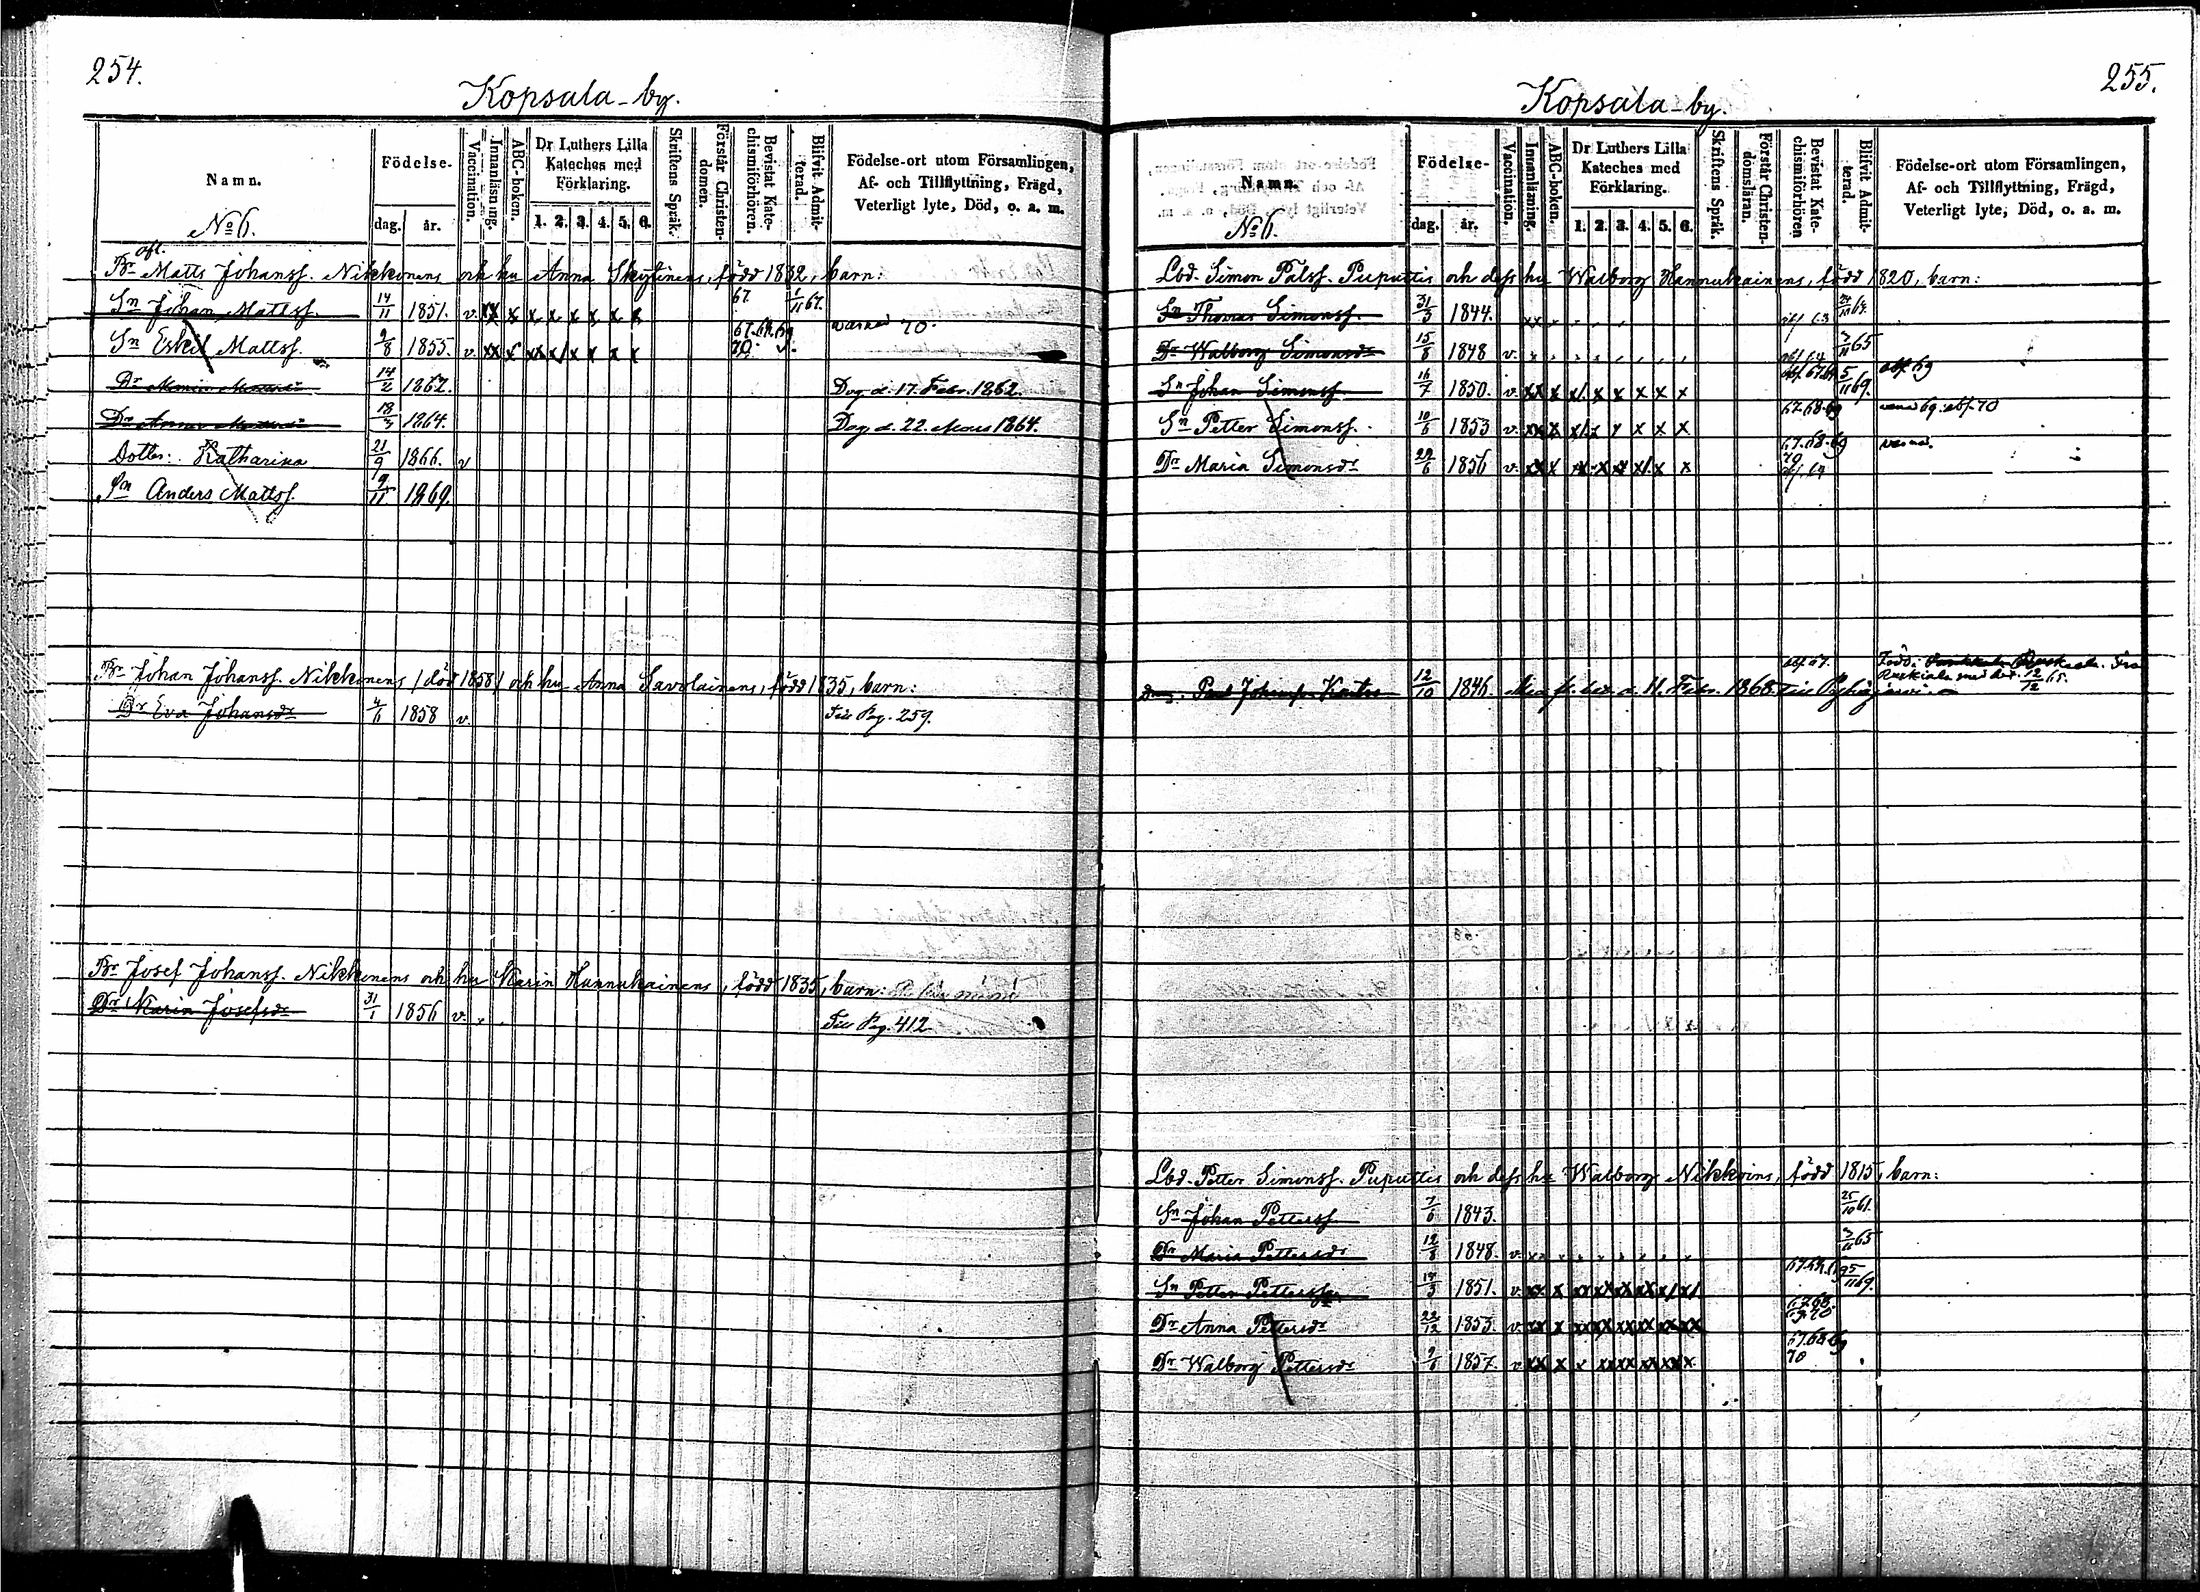 254.
Kopsala-by.
Namn.
Födelse-
dag. år.
Vaccination.
Innanläsning.
ABC-boken.
Dr Luthers Lilla Kateches med Förklaring.
1. 2. 3. 4. 5. 6.
Skriftens Språk.
Förstår Christendomen.
Bevistat Katechismiförhören.
Blifvit Admitterad.
Födelse-ort utom Församlingen, Af- och Tillflyttning, Frägd, Veterligt lyte, Död, o. a. m.
No 6.
afl.
Br Matts Johanss. Nikkonens och hu Anna Skytinens, född 1832, barn:
Sn Johan Mattss. 14/11 1851. v. xx x x x x x x x 67. 1/11 67.
Sn Eskil Mattss. 9/8 1855. v. 67.68.69 70.
14/2 1862. Dog d. 17. Febr. 1862.
18/3 1864. Dog d. 22. Mars 1864.
Dotter: Katharina 21/9 1866. v
Sn Anders Mattss. 9/11 1869.
Br Johan Johanss. Nikkonens /död 1858/ och hu Anna Savolainens, född 1835, barn:
Dr Eva Johansdr 4/6 1858 v. Till Pag. 259.
Br Josef Johanss. Nikkonens och hu Karin Hannukainens, född 1835, barn:
Dr Karin Josefsdr 31/1 1856 v. Till Pag. 412
255.
Kopsala-by.
Namn.
Födelse-
dag. år.
Vaccination.
Innanläsning.
ABC-boken.
Dr Luthers Lilla Kateches med Förklaring.
1. 2. 3. 4. 5. 6.
Skriftens Språk.
Förstår Christendomsläran.
Bevistat Katechismiförhören
Blifvit Admitterad.
Födelse-ort utom Församlingen, Af- och Tillflyttning, Frägd, Veterligt lyte, Död, o. a. m.
No 6.
Lbd. Simon Pålss. Puputtis och dess hu Walborg Hannukainens, född 1820, barn:
Sn Thomas Simonss. 31/3 1844.
Dr Walborg Simonsdr 15/8 1848 v. 65
Sn Johan Simonss. 16/7 1850. v. xx x 5/11 69.
Sn Petter Simonss. 10/6 1853 v. 67.68.69
Dr Maria Simonsdr 29/6 1856 v. 67.68.69 70
Drg. Paul Johanss. 12/10 1846. d. 11. Febr. 1868 till Pyhäjärvi
Lbd. Petter Simonss. Puputtis och dess hu Walborg Nikkoins, född 1815, barn:
Sn Johan Petterss. 7/6 1843. 25/10 61.
Dr Maria Pettersdr 12/8 1848. v. 65
Sn Petter Petterss. 1851. v. 69.
Dr Anna Pettersdr 22/12 1853. v.
Dr Walborg Pettersdr 1857. v 67.68.69 70